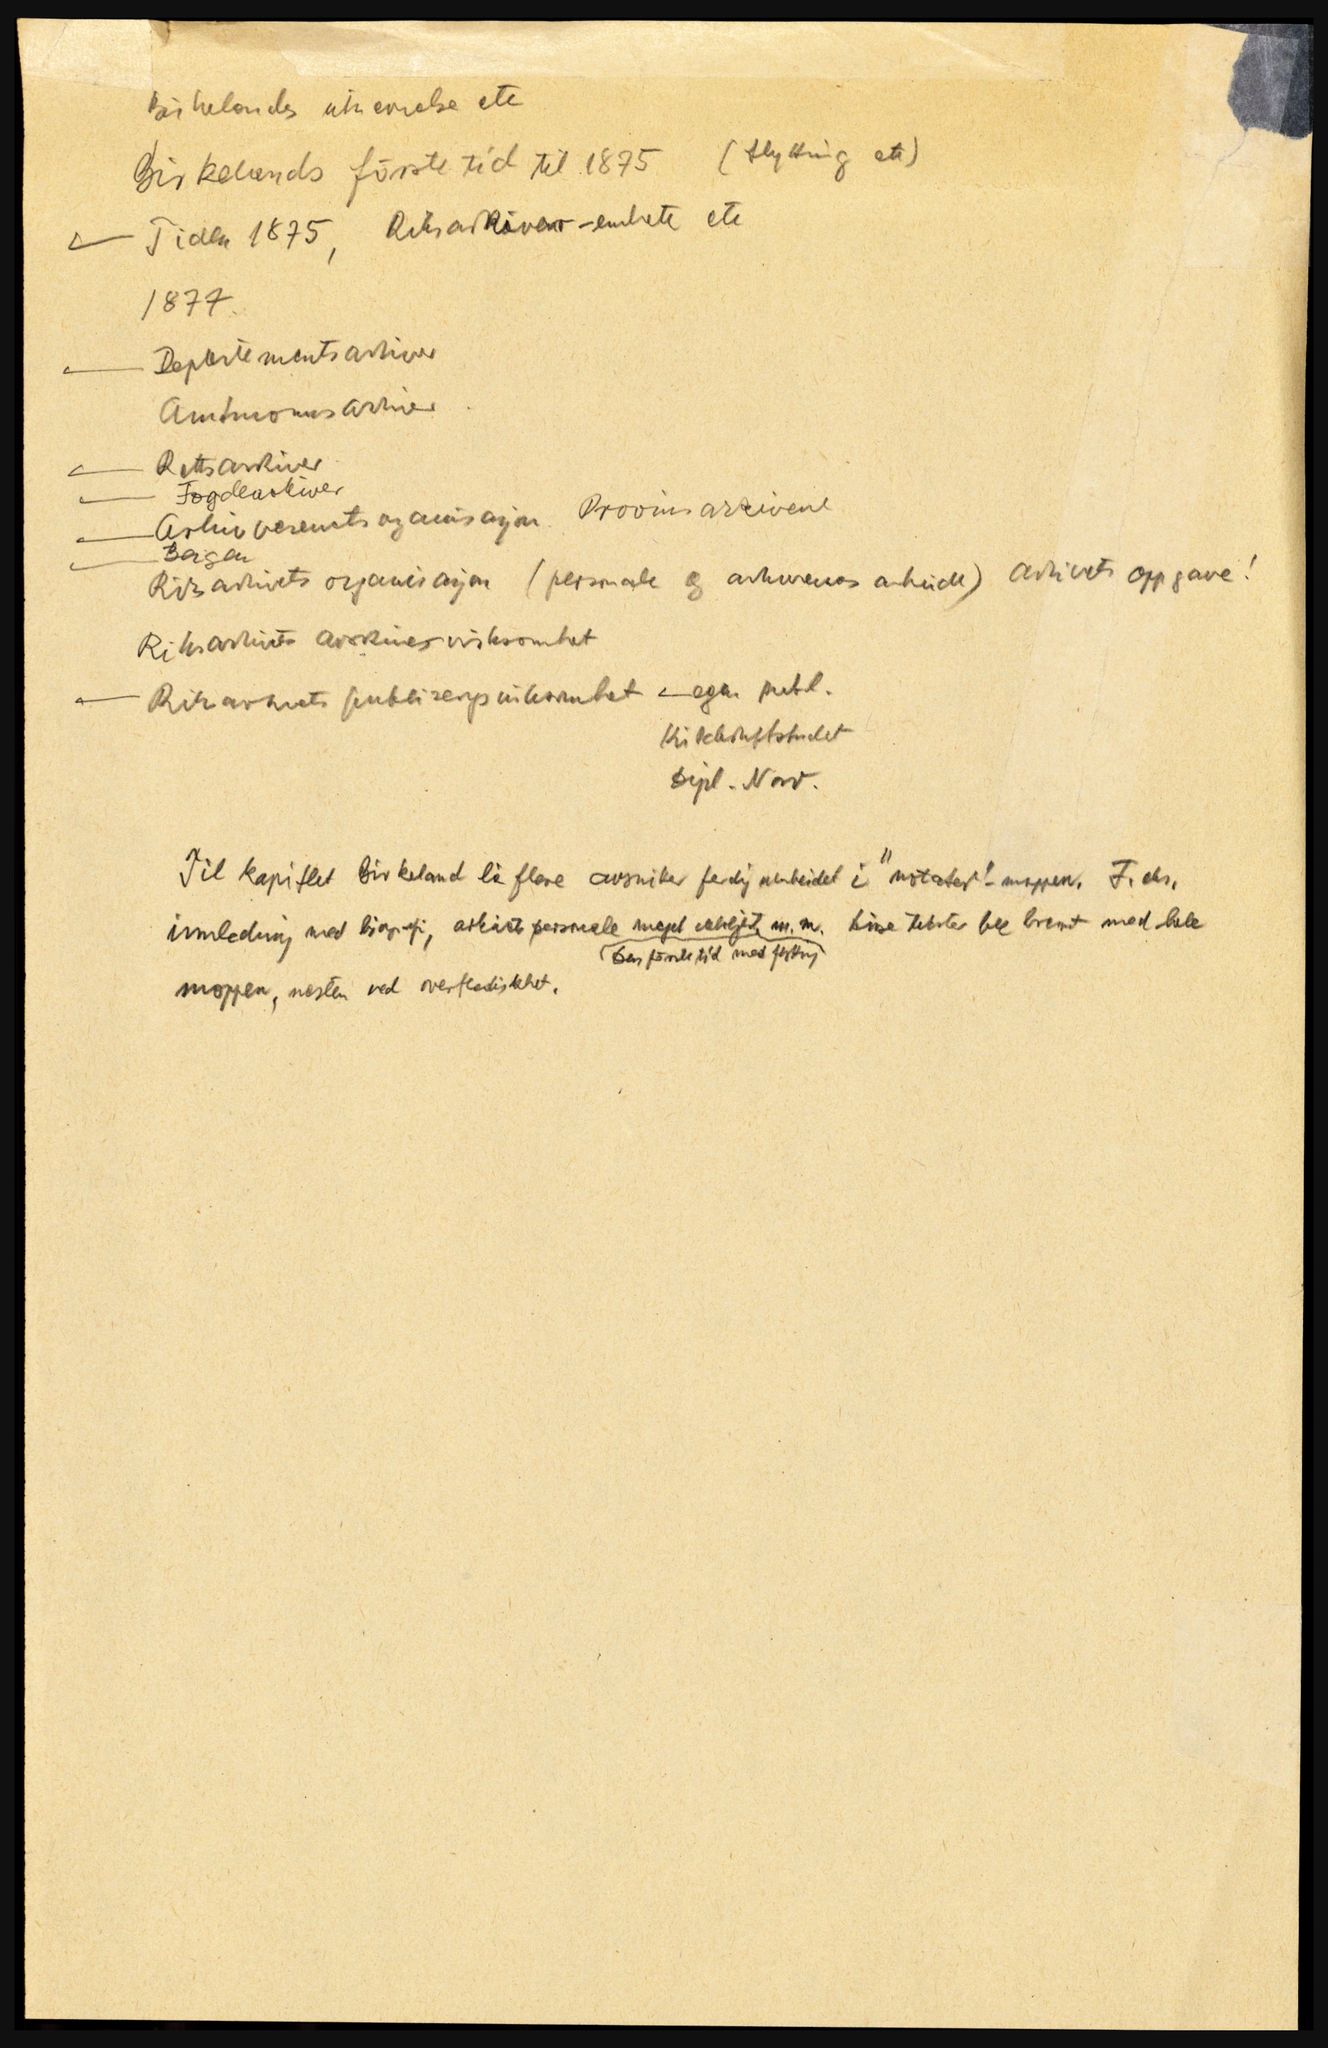 Birkelands utnevnelse etc
Birkelands förste tid til 1875 (flytting etc)
← Tiden 1875, Riksarkivar-embete etc
1877.
← Departementsarkiver
Amtmannsarkiver
← Rettsarkiver
← Fogdearkiver
← Arkivvesenets organisasjon. Provinsarkivene
← Bergen
Riksarkivets organisasjon (personale og arkivenes arbeide) Arkivets oppgave!
Riksarkivets arkiver virksomhet
← Riksarkivets publiseringsvirksomhet ← egen publ.
Kildeskriftfondet
Dipl. Norv.
Til kapitlet Birkeland lå flere avsnitter ferdig utarbeidet i "notater"-mappen. F. eks.
innledning med biografi, arkivets personale meget utførlig, m.m. Disse tekster ble brent med hele
(Den förste tid med flytting)
mappen, nesten ved overfladiskhet.